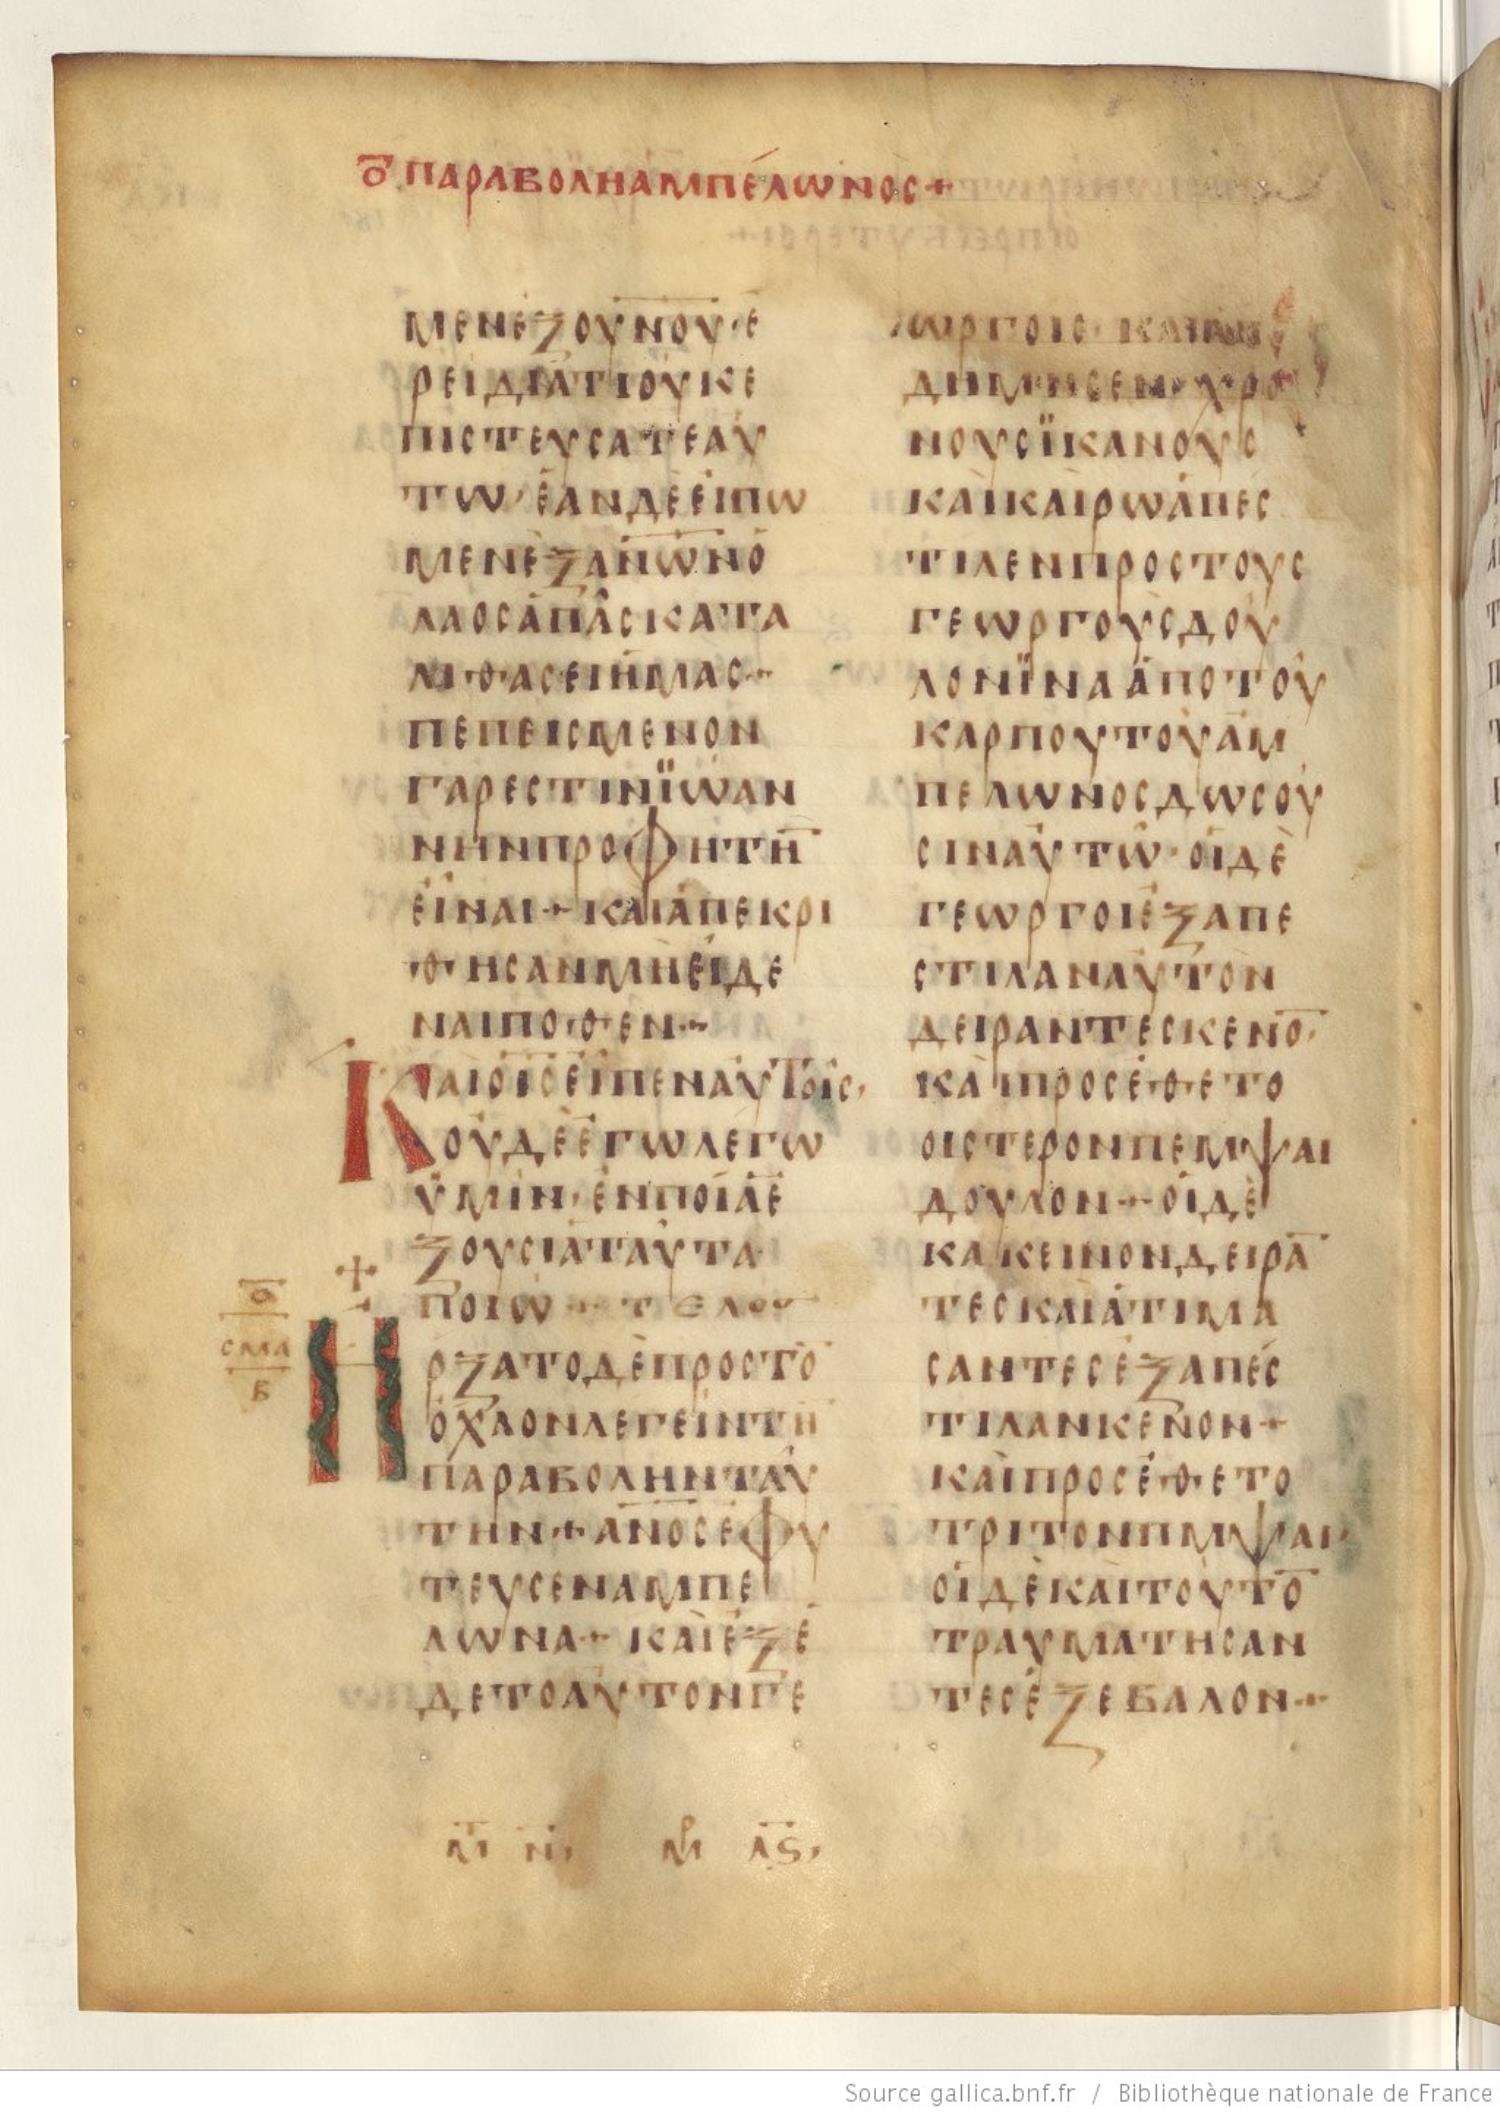 Ο̅ ΠΑΡΑΒΟΛΗ ΑΜΠΕΛΩΝΟΣ+
ΜΕΝΕΖΟΥΝΟΥ·Ε
ΡΕΙΔΙΑΤΙΟΥΚΕ
ΠΙCΤΕΥCΑΤΕΑΥ
ΤΩ·ΕΑΝΔΕΕΙΠΩ
ΜΕΝΕΖΑΝ̅Ω̅Ν̅Ο
ΛΑΟCΑΠΑCΚΑΤΑ
ΛΙΘΑCΕΙΗΜΑC+
ΠΕΠΕΙCΜΕΝΟΝ
ΓΑΡΕCΤΙΝΪΩΑΝ
ΝΗΝΠΡΟΦΗΤΗ̅
ΕΙΝΑΙ+ΚΑΙΑΠΕΚΡΙ
ΘΗCΑΝΜΗΕΙΔΕ
ΝΑΙΠΟΘΕΝ+
ΚΑΙΟΙ̅C̅ΕΙΠΕΝΑΥΤΟΙC,
ΟΥΔΕΕΓΩΛΕΓΩ
ΫΜΙΝ·ΕΝΠΟΙΑΕ
ΖΟΥCΙΑΤΑΥΤΑ
ΠΟΙΩ+ ΤΕΛΟC
Ο̅
CΜΑ
Β
ΗΡΖΑΤΟΔΕΠΡΟCΤΟ̅
ΟΧΛΟΝΛΕΓΕΙΝΤΗ
ΠΑΡΑΒΟΛΗΝΤΑΥ
ΤΗΝ+Α̅Ν̅Ο̅CΕΦΥ
ΤΕΥCΕΝΑΜΠΕ
ΛΩΝΑ+ΚΑΙΕΖΕ
ΔΕΤΟΑΥΤΟΝΓΕ
ΩΡΓΟΙC·ΚΑΙΑΠΕ
ΔΗΜΗCΕΝ·ΧΡΟ
ΝΟΥCΪΚΑΝΟΥC
ΚΑΙΚΑΙΡΩΑΠΕC
ΤΙΛΕΝΠΡΟCΤΟΥC
ΓΕΩΡΓΟΥCΔΟΥ
ΛΟΝΪΝΑΑΠΟΤΟΥ
ΚΑΡΠΟΥΤΟΥΑΜ
ΠΕΛΩΝΟCΔΩCΟΥ
CΙΝΑΥΤΩ·ΟΙΔΕ
ΓΕΩΡΓΟΙΕΖΑΠΕ
CΤΙΛΑΝΑΥΤΟΝ
ΔΕΙΡΑΝΤΕCΚΕΝΟ̅·
ΚΑΙΠΡΟCΕΘΕΤΟ
ΟΙCΤΕΡΟΝΠΕΜΨΑΙ
ΔΟΥΛΟΝ+ΟΙΔΕ
ΚΑΚΕΙΝΟΝΔΕΙΡΑ̅
ΤΕCΚΑΙΑΤΙΜΑ
CΑΝΤΕCΕΖΑΠΕC
ΤΙΛΑΝΚΕΝΟΝ+
ΚΑΙΠΡΟCΕΘΕΤΟ
ΤΡΙΤΟΝΠΜΨΑΙ
ΟΙΔΕΚΑΙΤΟΥΤΟ̅
ΤΡΑΥΜΑΤΗCΑΝ
ΤΕCΕΖΕΒΑΛΟΝ+
Source gallica.bnf.fr / Bibliothèque nationale de France